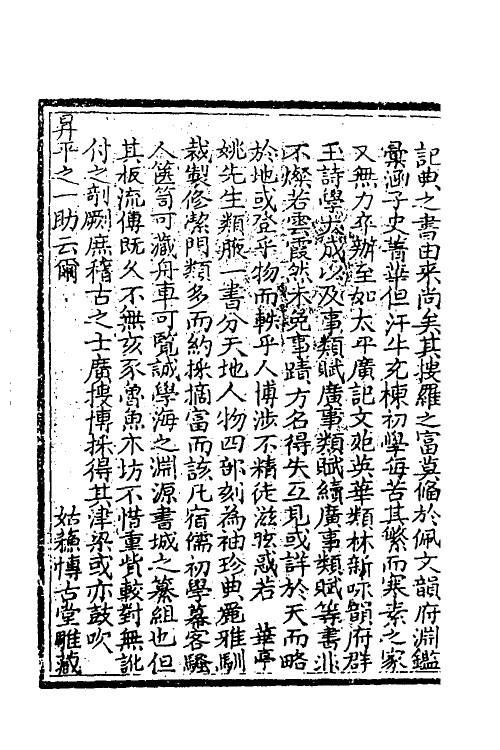 記典之書由来尚矣其搜羅之富莫偹於佩文韻府淵鑑
彙涵子史菁華但汗牛充棟初學每苦其繁而寒素之家
又無力卒辦至如太平廣記文苑英華類林新咏韻府群
玉詩學大成以及事類賦廣事類賦續廣事類賦等書非
不燦若雲霞然未免事蹟方名得失互見或詳於天而略
於地或登乎物而軼乎人博涉不精徒滋眩惑若 華亭
姚先生類腋一書分天地人物四部刻為袖珍典麗雅馴
裁製修潔門類多而約採摘富而該凡宿儒初學幕客騷
人篋笥可藏舟車可覽誠學海之淵源書城之纂組也但
其板流傳既久不無亥豕魯魚木坊不惜重貲較對無訛
付之剞劂庶稽古之士廣搜博採得其津梁或亦鼓吹
昇平之一助云爾 姑蘇博古堂雕藏